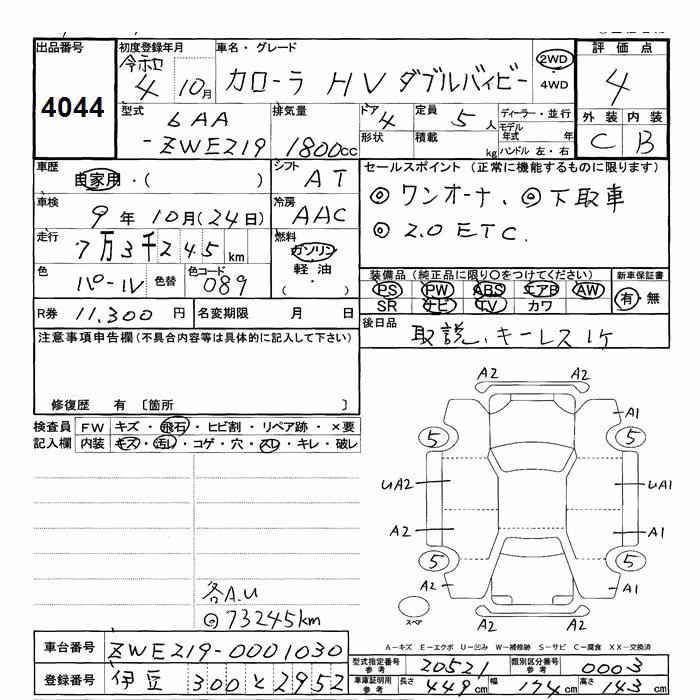 出品番号 初度登録年月 車名・グレード 評価点
4044 令和 4 10月 カローラ HV ダブルバイビー 2WD ・ 4WD 4
型式 排気量 ドア 定員 ディーラー・並行 外装 内装
6AA 4 5人 モデル年式 年 C B
-ZWE219 1800cc 形状 積載 kg ハンドル 左・右
車歴 シフト セールスポイント（正常に機能するものに限ります）
自家用・( ) AT ◎ワンオーナ、◎下取車
車検 冷房 ◎2.0 ETC.
9年10月(24日) AAC
走行 燃料
7万3千245km ガソリン
色 色替 色コード 軽油 装備品（純正品に限り○をつけてください） 新車保証書
パール 089 ・( ) PS PW ABS エアB AW 有・無
SR ナビ TV カワ
R券 11,300円 名変期限 月 日 後日品
取説、キーレス1ケ
注意事項申告欄(不具合内容等は具体的に記入して下さい)
修復歴 有 〔箇所 〕
検査員 FW キズ・飛石・ヒビ割・リペア跡・×要
記入欄 内装 キズ・汚レ・コゲ・穴・スレ・キレ・破レ
A2 A2
A1
5 5
UA2 UA1
A2 A1
5 5
A2 A1
スペア
A2 A2
各A.U
◎73245km
A−キズ E−エクボ U−凹み W−補修跡 S−サビ C−腐食 XX−交換済
車台番号 ZWE219-0001030
型式指定番号 参考 20521 類別区分番号 参考 0003
登録番号 伊豆 300 と 2952
車庫証明用 参考 長さ 449cm 幅 174cm 高さ 143cm